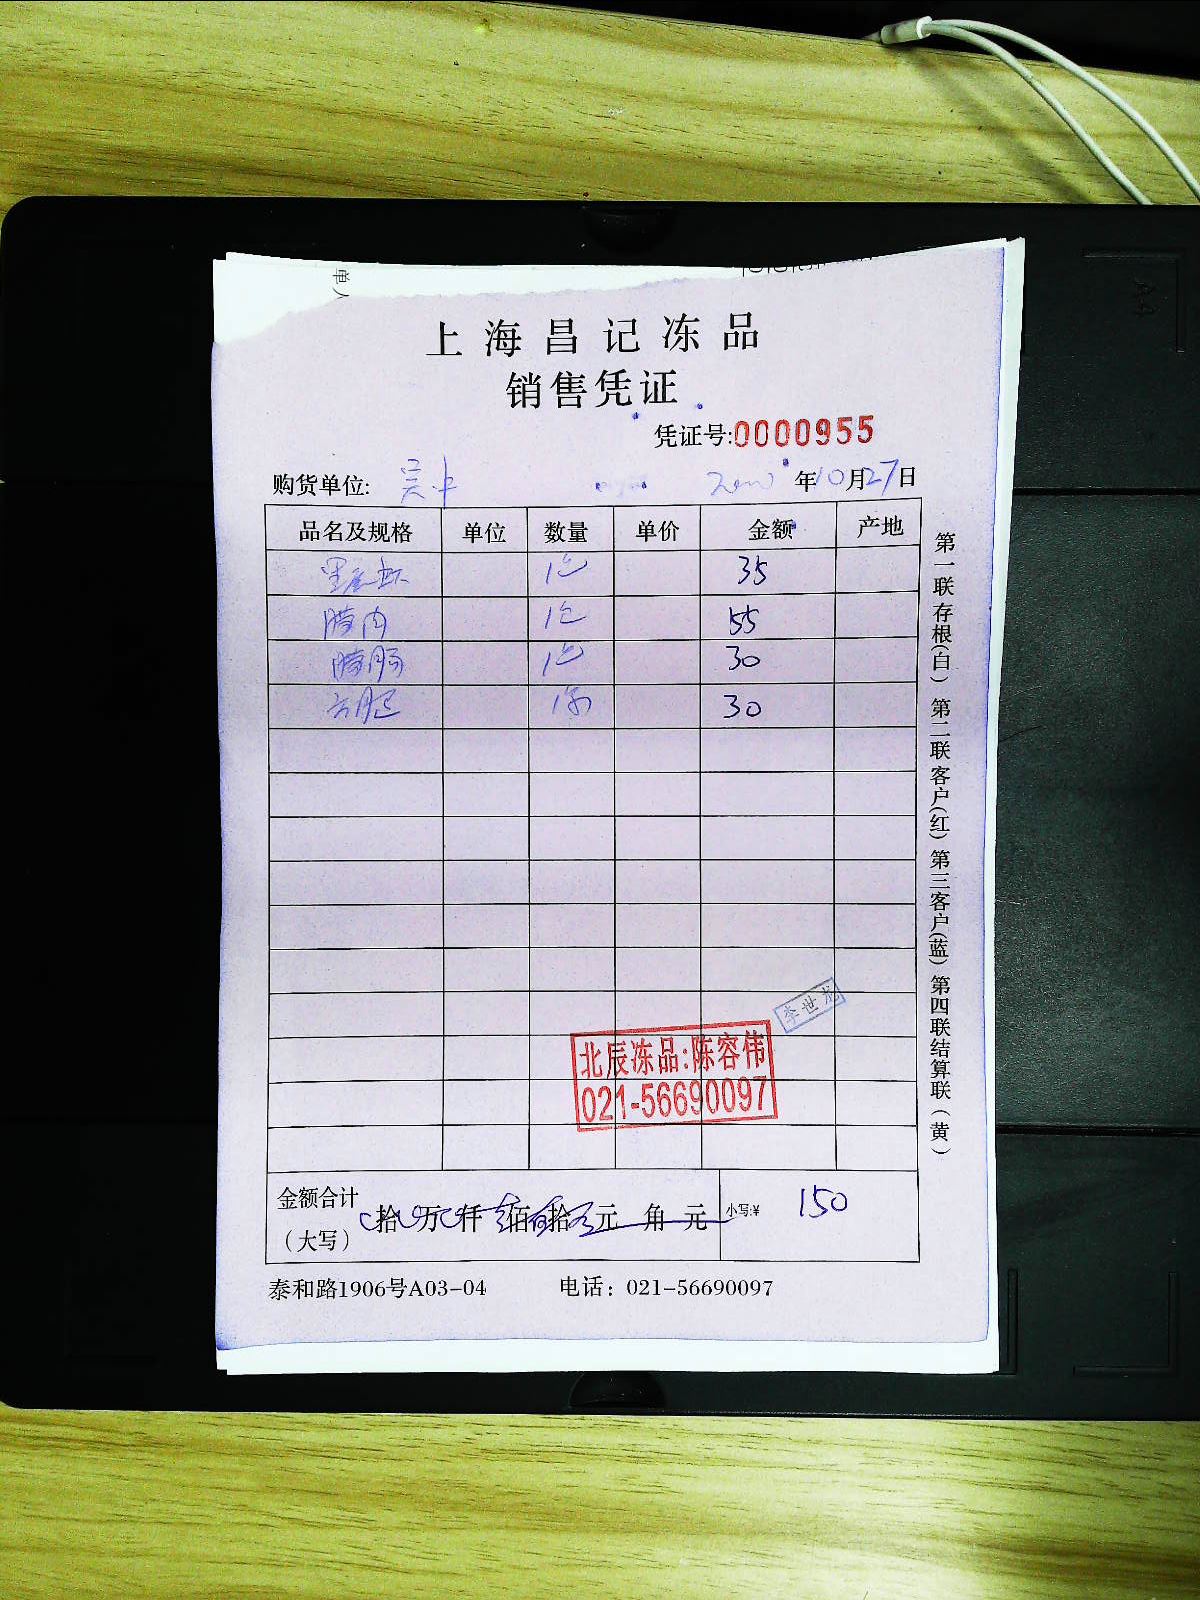 单人
上海昌记冻品
销售凭证
凭证号:0000955
购货单位: 吴中 年10月27日
品名及规格 单位 数量 单价 金额 产地
1包 35
腊肉 1包 55
腊肠 1包 30
1 30
李世龙
北辰冻品:陈容伟
021-56690097
金额合计
（大写） 拾 万 仟 佰 拾 元 角 元 小写:¥ 150
泰和路1906号A03-04 电话：021-56690097
第一联存根(白) 第二联客户(红) 第三客户(蓝) 第四联结算联(黄)